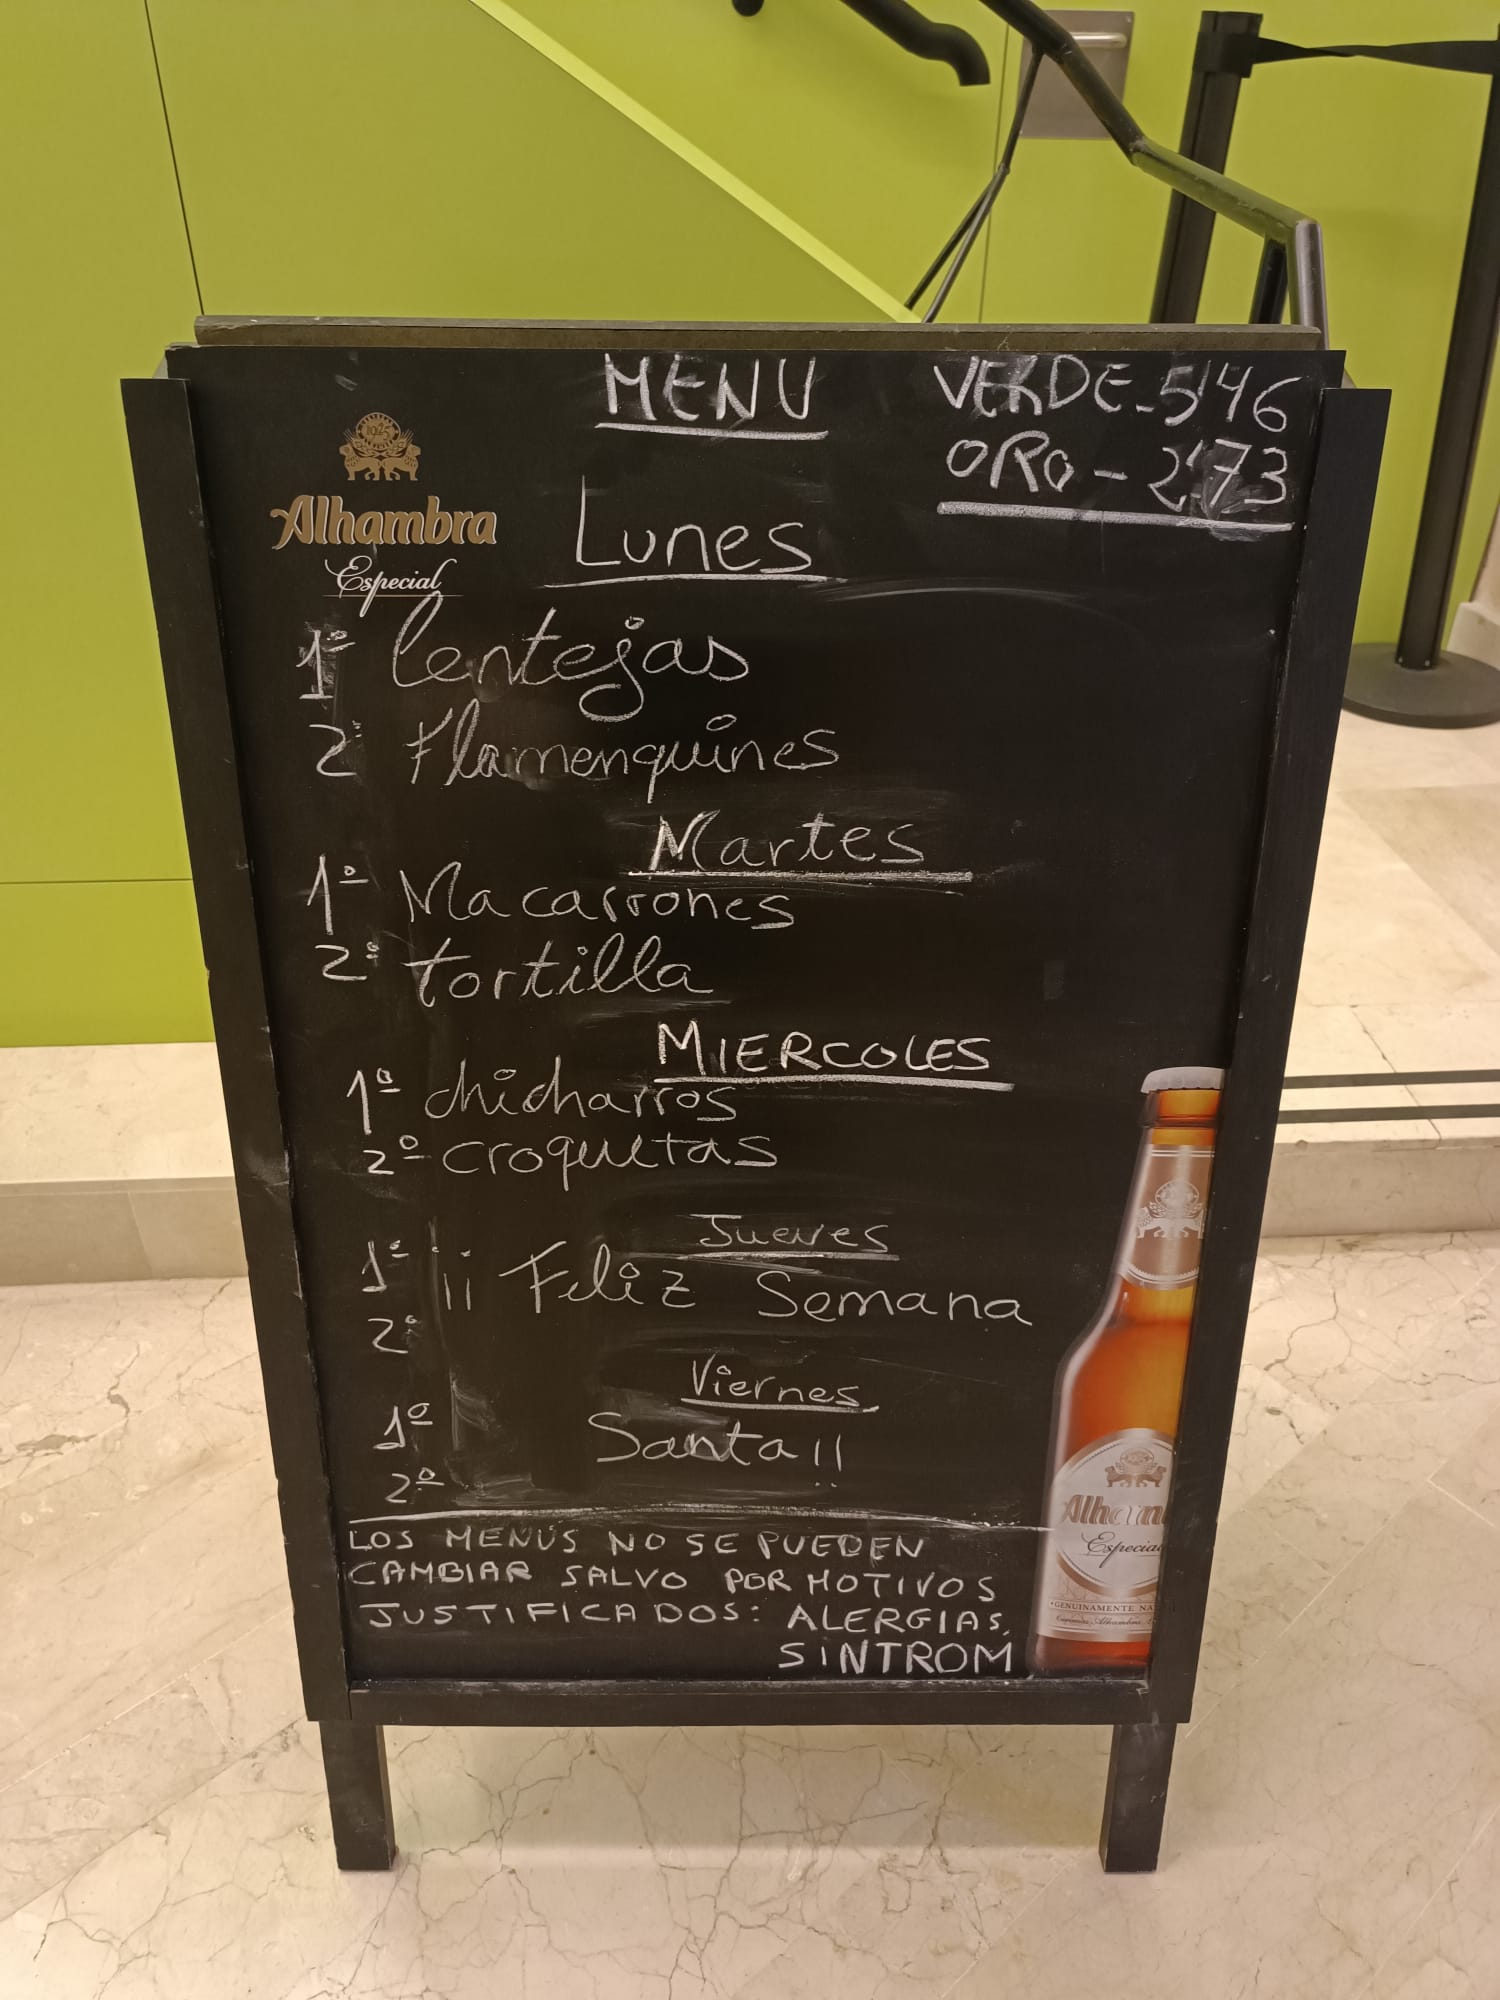 MENU
VERDE-5'46
ORO-2'73
1925
Alhambra
Especial
Lunes
1º lentejas
2º Flamenquines
Martes
1º Macarrones
2º tortilla
MIERCOLES
1º chicharros
2º croquetas
Jueves
1º ¡¡ Feliz Semana
2º
Viernes
1º Santa!!
2º
LOS MENUS NO SE PUEDEN
CAMBIAR SALVO POR MOTIVOS
JUSTIFICADOS: ALERGIAS,
SiNTROM
Alham
Especial
GENUINAMENTE NA